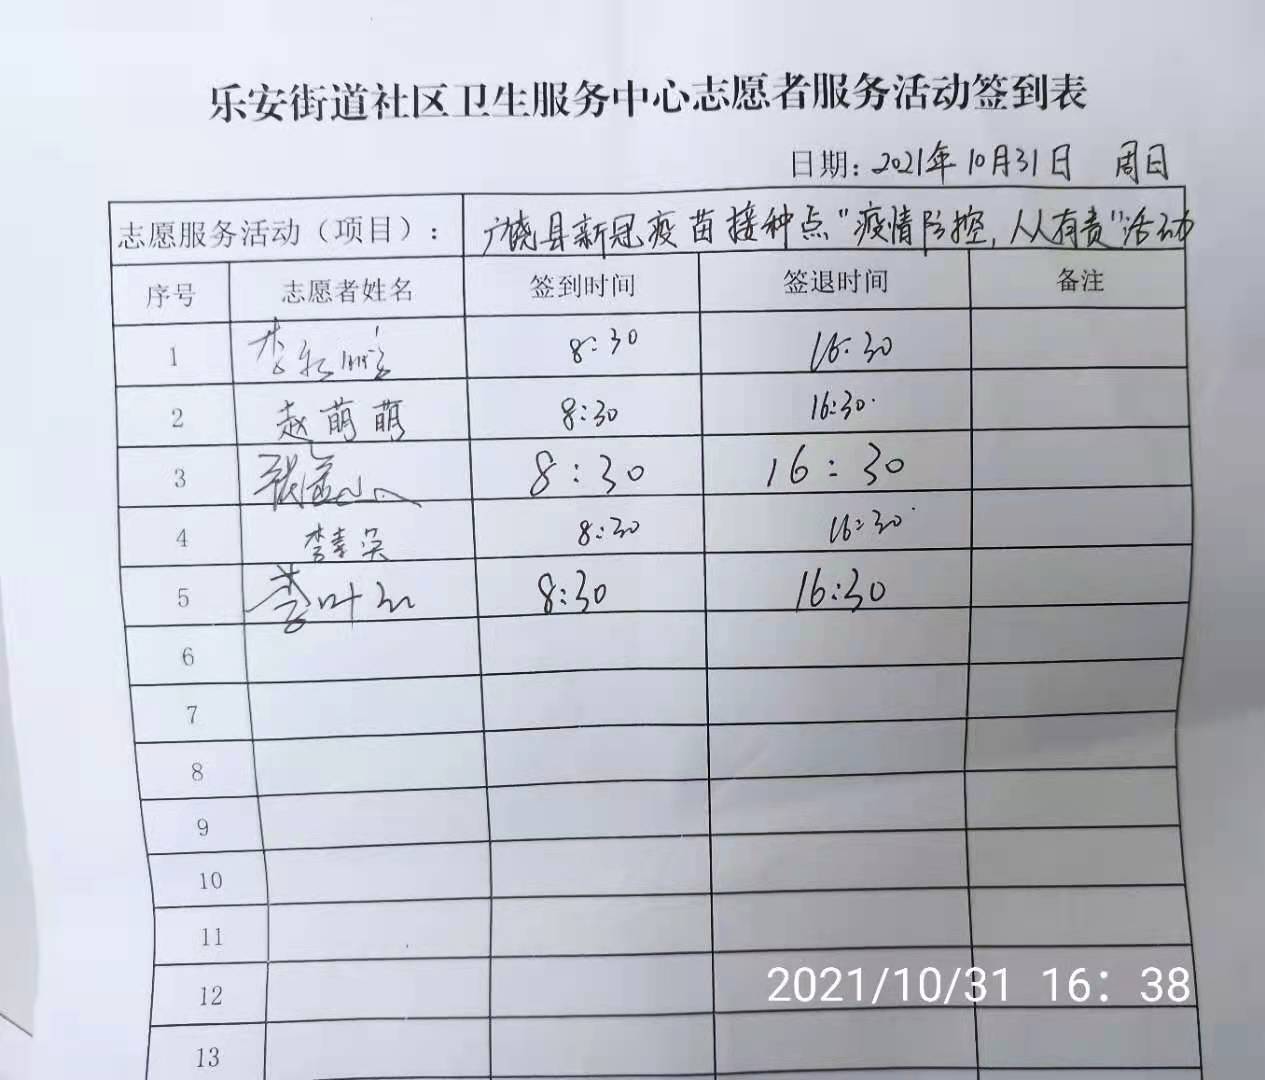 乐安街道社区卫生服务中心志愿者服务活动签到表
日期：2021年10月31日 周日
志愿服务活动（项目）： 广饶县新冠疫苗接种点"疫情防控，人人有责"活动
序号 志愿者姓名 签到时间 签退时间 备注
1 李 8:30 16:30
2 赵萌萌 8:30 16:30
3 张 8:30 16:30
4 李 8:30 16:30
5 李叶红 8:30 16:30
6
7
8
9
10
11
12
2021/10/31 16：38
13